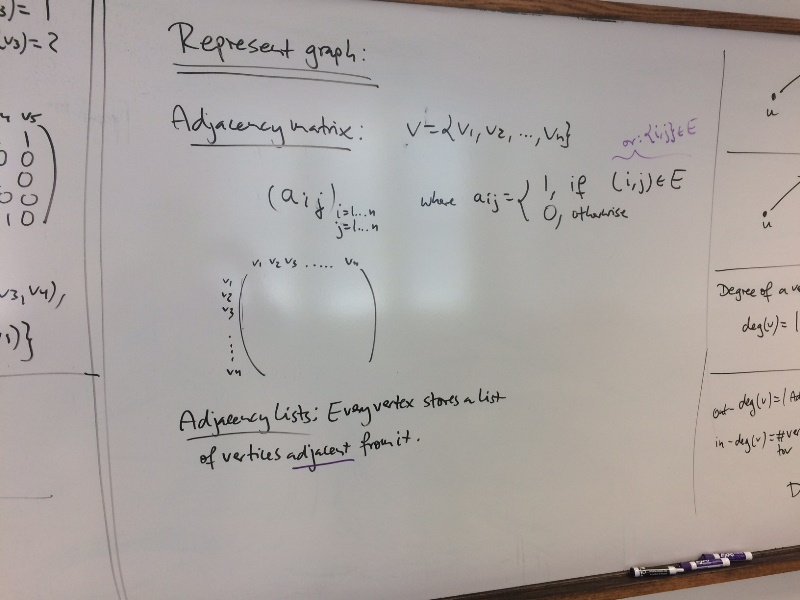 s)= 1
(v3)= 2
v5
1
0 0
0
0 0
1 0
v3, v4),
1)}
Represent graph:
Adjacency matrix: V = {v1, v2, ..., vn}
or: {i,j} ∈ E
(aij) i=1...n j=1...n where aij = { 1, if (i,j) ∈ E
0, otherwise
v1 v2 v3 ..... vn
v1
v2
v3
vn
Adjacency Lists: Every vertex stores a list
of vertices adjacent from it.
u
u
Degree of a ve
deg(v) = |
out-deg(v) = |Ad
in-deg(v) = #ver
D
EXPO